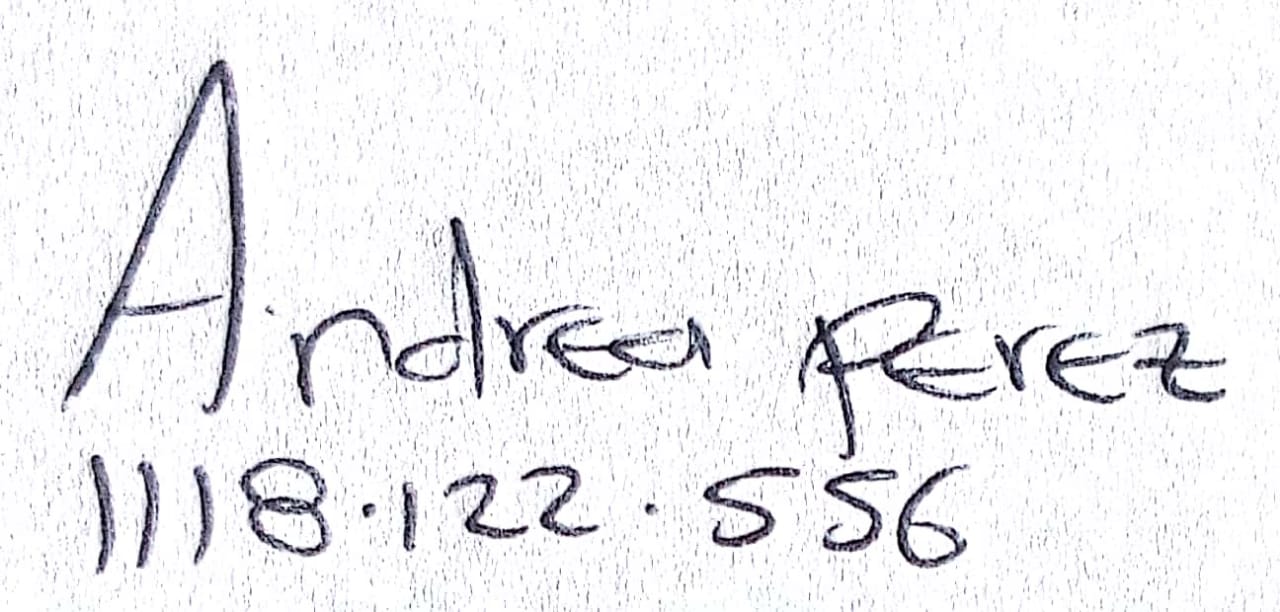 Andrea Perez
1118.122.556